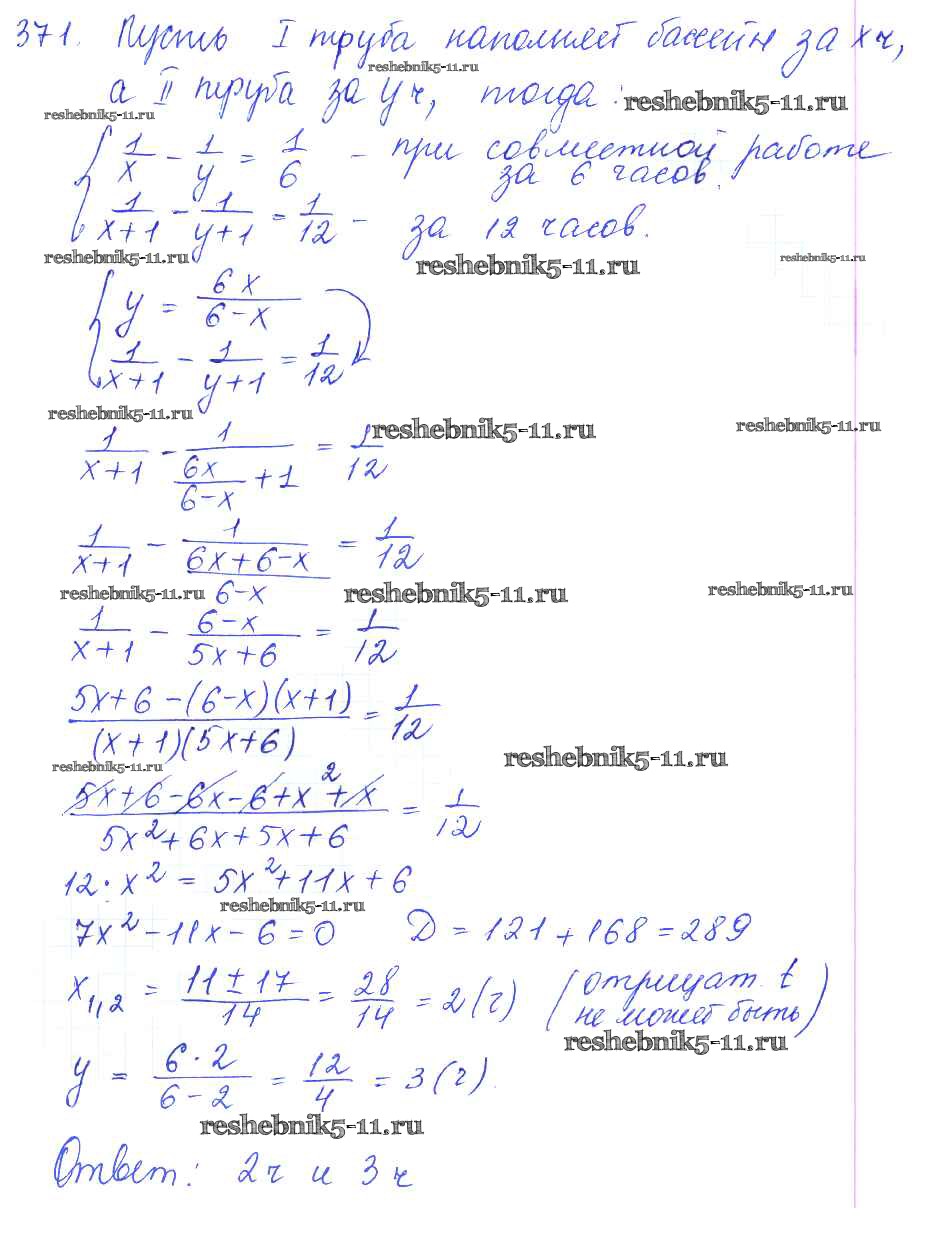 371. Пусть I труба наполняет бассейн за x ч,
reshebnik5-11.ru
а II труба за y ч, тогда:
reshebnik5-11.ru
reshebnik5-11.ru
{ 1/x - 1/y = 1/6 - при совместной работе
за 6 часов.
1/(x+1) - 1/(y+1) = 1/12 - за 12 часов.
reshebnik5-11.ru
reshebnik5-11.ru
reshebnik5-11.ru
{ y = 6x/(6-x)
1/(x+1) - 1/(y+1) = 1/12
reshebnik5-11.ru
reshebnik5-11.ru
reshebnik5-11.ru
1/(x+1) - 1/(6x/(6-x) + 1) = 1/12
1/(x+1) - 1/((6x+6-x)/(6-x)) = 1/12
reshebnik5-11.ru
reshebnik5-11.ru
reshebnik5-11.ru
1/(x+1) - (6-x)/(5x+6) = 1/12
(5x+6-(6-x)(x+1))/((x+1)(5x+6)) = 1/12
reshebnik5-11.ru
reshebnik5-11.ru
(5x+6-6x-6+x²+x)/(5x²+6x+5x+6) = 1/12
12·x² = 5x²+11x+6
reshebnik5-11.ru
7x²-11x-6=0 D = 121+168=289
x1,2 = (11±17)/14 = 28/14 = 2 (ч) (отрицат. t
не может быть)
reshebnik5-11.ru
y = (6·2)/(6-2) = 12/4 = 3 (ч).
reshebnik5-11.ru
Ответ: 2ч и 3ч